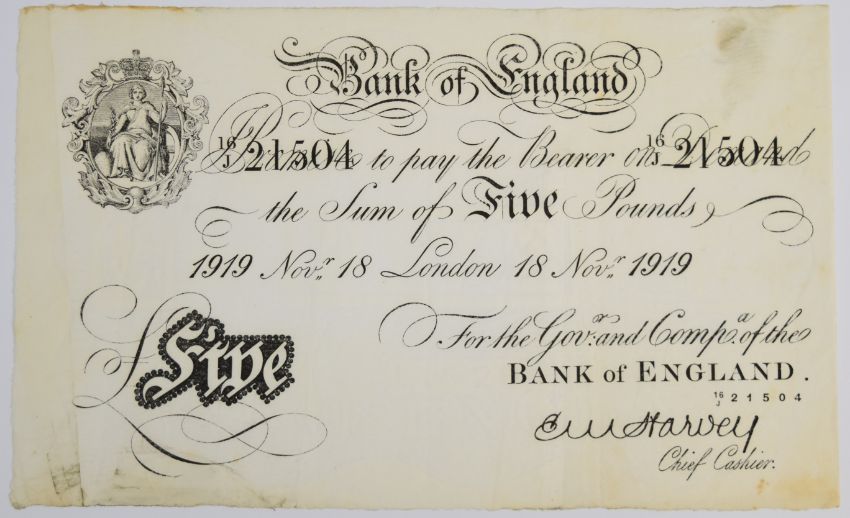 Bank of England
16/J 21504 16/J 21504
I Promise to pay the Bearer on Demand
the Sum of Five Pounds
1919 Novr. 18 London 18 Novr. 1919
Five
For the Govr. and Compa. of the
BANK of ENGLAND.
16/J 21504
E M Harvey
Chief Cashier.